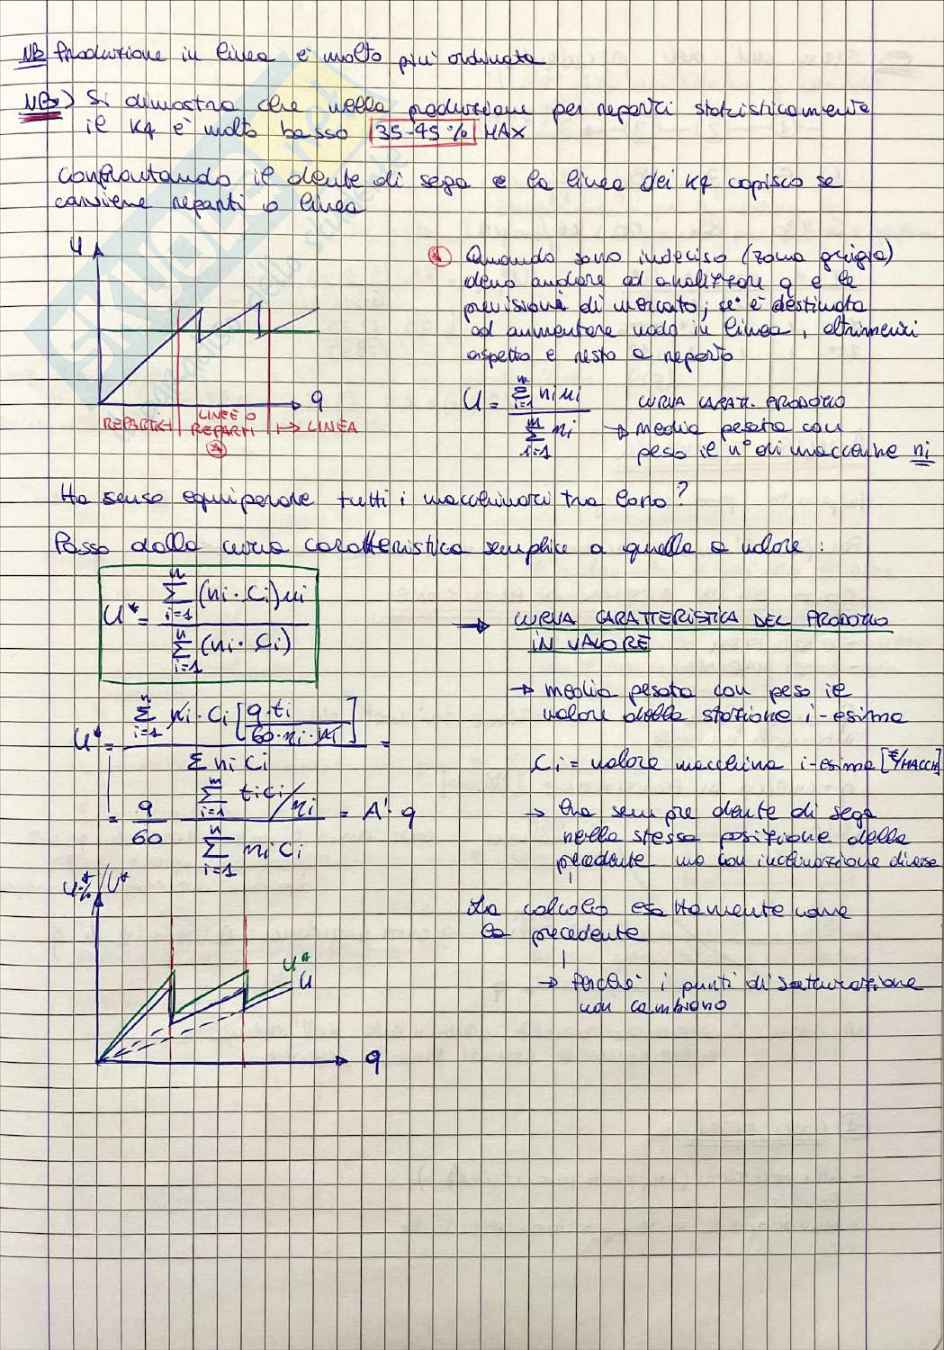 NB Produzione in linea è molto più ordinata
NB) Si dimostra che nella produzione per reparti statisticamente
il K4 è molto basso 35-45% MAX
Confrontando il dente di sega e la linea dei K4 capisco se
conviene reparti o linea
U
q
REPARTI
LINEE O
REPARTI
→ LINEA
Quando sono indeciso (zona grigia)
devo andare ad analizzare q e le
previsioni di mercato; se è destinata
ad aumentare vado in linea, altrimenti
aspetto e resto a reparto
U = \frac{\sum_{i=1}^{n} ni ui}{\sum_{i=1}^{n} ni}
CURVA CARATT. PRODOTTO
→ media pesata con
peso il n° di macchine ni
Ha senso equiparare tutti i macchinari tra loro?
Passo dalla curva caratteristica semplice a quella a valore:
U* = \frac{\sum_{i=1}^{n} (ni · Ci) ui}{\sum_{i=1}^{n} (ni · Ci)}
→ CURVA CARATTERISTICA DEL PRODOTTO
IN VALORE
→ media pesata con peso il
valore della stazione i-esima
U* = \frac{\sum_{i=1}^{n} ni · Ci [\frac{q·ti}{60·ni·ηi}]}{Σ ni Ci} =
Ci = valore macchina i-esima [€/MACCH]
= \frac{q}{60} \frac{\sum_{i=1}^{n} tiCi/ηi}{\sum_{i=1}^{n} ni Ci} = A' · q
→ ha sempre dente di sega
nella stessa posizione della
precedente ma con inclinazione diversa
U%/U*
La calcolo esattamente come
la precedente
U*
U
→ Perché i punti di saturazione
non cambiano
q